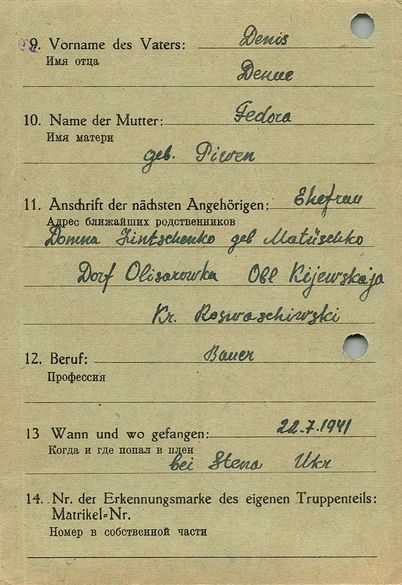 9. Vorname des Vaters: Denis
Имя отца
Denue
10. Name der Mutter: Fedora
Имя матери
geb. Piwen
11. Anschrift der nächsten Angehörigen: Ehefrau
Адрес ближайших родственников
Domna Zintschenko geb Matüschko
Dorf Olisarowka Obl Kijewskaja
Kr. Roswaschiwski
12. Beruf: Bauer
Профессия
13 Wann und wo gefangen: 22.7.1941
Когда и где попал в плен
bei Stena Ukr
14. Nr. der Erkennungsmarke des eigenen Truppenteils:
Matrikel=Nr.
Номер в собственной части